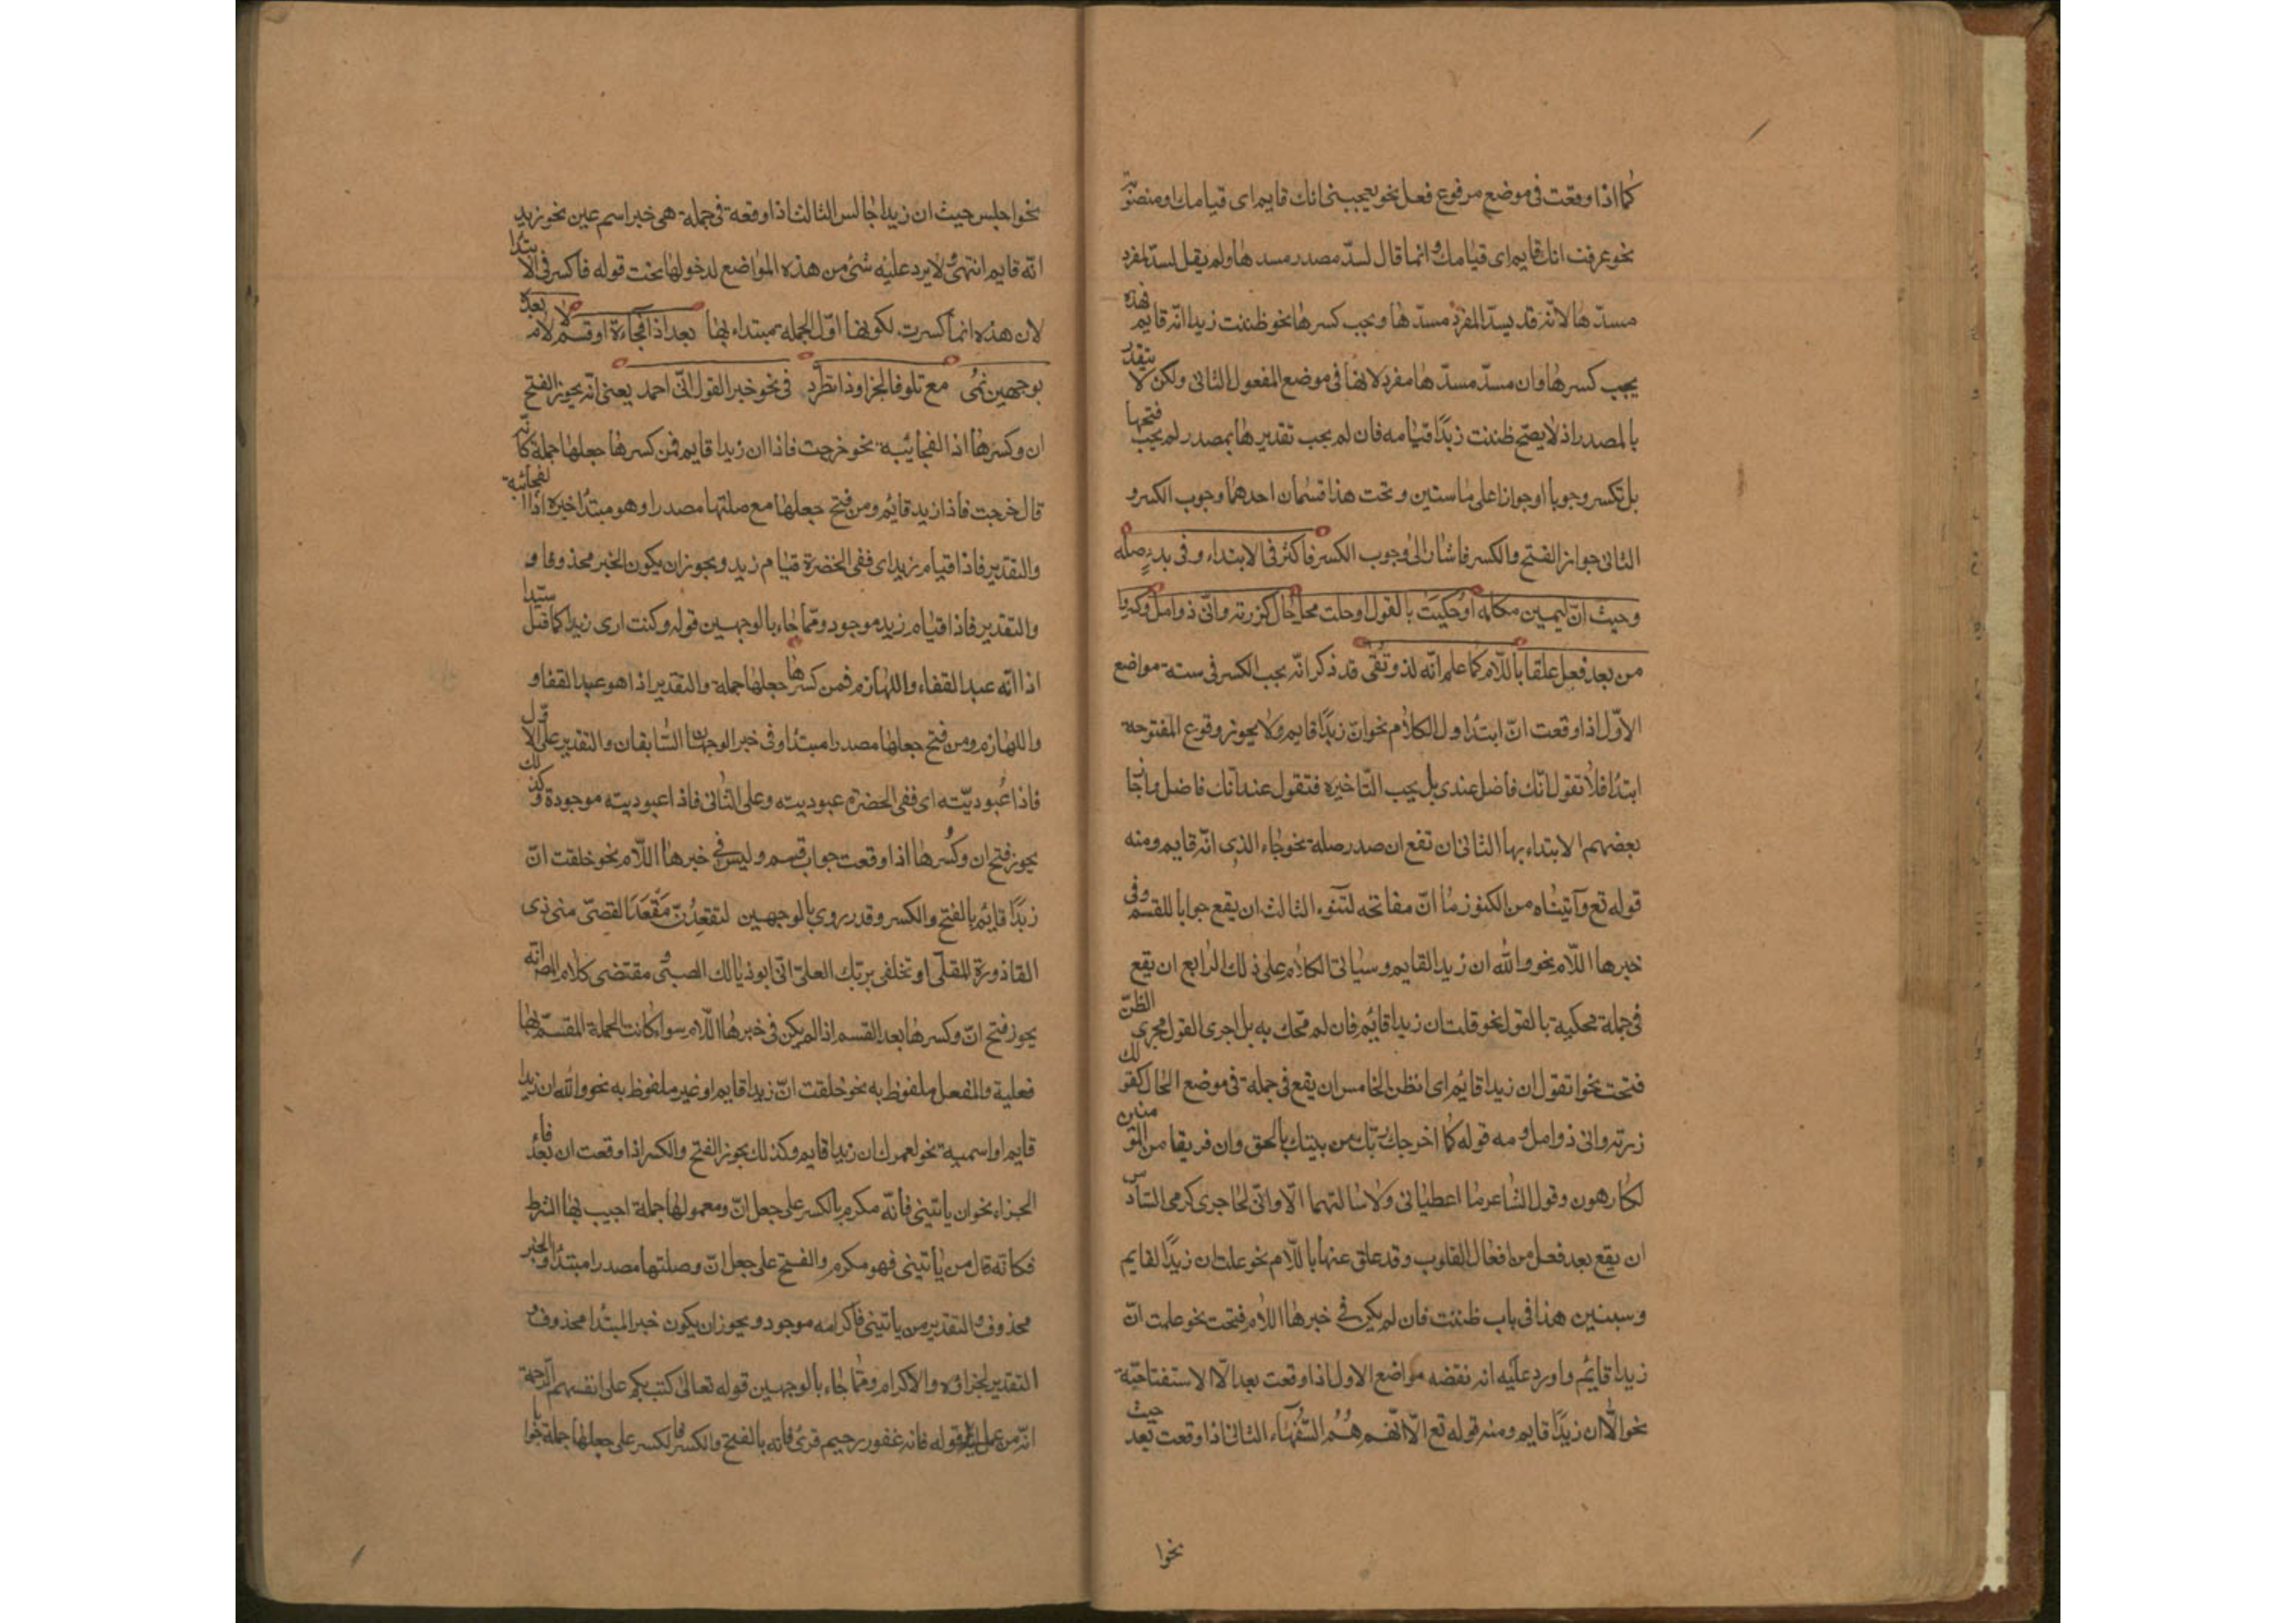 كما اذا وقعت فى موضع مرفوع فعل نحو يعجبنى انك قايم اى قيامك او منصوبه
نحو عرفت انك قايم اى قيامك وانما قال لسدّ مصدر مسدها ولم يقل لسدّ مفرد
مسدّها لانّه قد يسدّ المفرد مسدّها ويجب كسرها نحو ظننت زيدا انّه قايم فهذه
يجب كسرها وان سدّ مسدّها مفرد لانها فى موضع المفعول الثانى ولكن لا يتقدر
بالمصدر اذ لا يصحّ ظننت زيدًا قيامه فان لم يجب تقديرها بمصدر لم يجب فتحها
بل تكسر وجوبا او جوازا على ما سنبين وتحت هذا قسمان احدهما وجوب الكسر و
الثانى جواز الفتح والكسر فاشار الى وجوب الكسر فاكسر فى الابتداء وفى بدء صله
وحيث انّ ليمين مكمله او حكيت بالقول او حلت محل حال كزرته وانّى ذو امل وكسروا
من بعد فعل علقا باللّام كاعلم انّه لذو تقى قد ذكر انّه يجب الكسر فى ستة مواضع
الاوّل اذا وقعت انّ ابتدا اول الكلام نحو انّ زيدًا قايم ولا يجوز وقوع المفتوحه
ابتدا فلا تقول انّك فاضل عندى بل يجب التّاخيره فتقول عندى انّك فاضل واجاز
بعضهم الابتداء بها الثانى ان تقع ان صدر صلة نحو جاء الذى انّه قايم ومنه
قوله تع وآتيناه من الكنوز ما انّ مفاتحه لتنوء الثالث ان يقع جوابا للقسم وفى
خبرها اللّام نحو والله ان زيدا لقايم وسياتى الكلام على ذلك الرابع ان يقع
فى جملة محكية بالقول نحو قلت ان زيدا قائم فان لم تحك به بل اجرى القول مجرى الظنّ
فتحت نحو اتقول ان زيدا قائم اى اتظن الخامس ان يقع فى جملة فى موضع الحال كقولك
زرته وانى ذو امل ومنه قوله كما اخرجك ربّك من بيتك بالحق وان فريقا من المؤمنين
لكارهون وقول الشاعر ما اعطيانى ولا سالتهما الّا وانّى لحاجزى كرمى السّادس
ان يقع بعد فعل من افعال القلوب وقد علق عنها باللّام نحو علمت ان زيدًا لقايم
وسنبين هذا فى باب ظننت فان لم يكن فى خبرها اللام فتحت نحو علمت انّ
زيدا قائم واورد عليه انه نقضه مواضع الاول اذا وقعت بعد الّا الاستفتاحيّة
نحو الّا ان زيدًا قايم ومنه قوله تع الّا انّهم هُم السُّفهاء الثانى اذا وقعت بعد حيث
نحوا
نحو اجلس حيث ان زيدا جالس الثالث اذا وقعة فى جملة هى خبر اسم عين نحو زيد
انّه قايم انتهى ولا يرد عليه شئ من هذه المواضع لدخولها تحت قوله فاكسر فى الابتدا
لان هذه انما كسرت لكونها اوّل الجمله مبتداء بها بعد اذا فجاءة او قسم لا لام بعده
بوجهين نمى مع تلو فا الجزا وذا تطّرد فى نحو خير القول انّى احمد يعنى انّه يجوز الفتح
ان وكسرها اذا الفجائيّة نحو خرجت فاذا ان زيدا قايم فمن كسرها جعلها جملة كانّه
قال خرجت فاذا زيد قائم ومن فتح جعلها مع صلتها مصدرا وهو مبتدا خبره اذا الفجائية
والتقدير فاذا قيام زيد اى ففى الحضرة قيام زيد ويجوز ان يكون الخبر محذوفا و
والتقدير فاذا قيام زيد موجود وممّا جاء بالوجهين قوله وكنت ارى زيدا كما قيل سيّدا
اذا انّه عبد القفاء واللهازم فمن كسرها جعلها جملة والتقدير اذا هو عبد القفا و
واللهازم ومن فتح جعلها مصدرا مبتدا وفى خبر الوجهان السّابقان والتقدير على الاوّل
فاذا عبوديّته اى ففى الحضرة عبوديته وعلى الثانى فاذا عبوديته موجودة وكذلك
يجوز فتح ان وكسرها اذا وقعت جواب قسم وليس فى خبرها اللّام نحو حلفت انّ
زيدًا قائم بالفتح والكسر وقد روى بالوجهين لتقعدنّ مَقْعَدَ القصىّ منى ذى
القاذورة المقلّى او تحلفى بربّك العلىّ انّى ابو ذيّالك الصبىّ ومقتضى كلام المص انه
يجوز فتح انّ وكسرها بعد القسم اذا لم يكن فى خبرها اللّام سواء كانت الجملة المقسم بها
فعلية والفعل ملفوظ به نحو حلفت انّ زيدا قايم او غير ملفوظ به نحو والله ان زيدا
قايم او اسمية نحو لعمرك ان زيدا قايم وكذلك يجوز الفتح والكسر اذا وقعت ان بعد فاء
الجزاء نحو ان ياتينى فانّه مكرم بالكسر على جعل انّ ومعمولها جملة اجيب بها الشرط
فكانّه قال من ياتينى فهو مكرم والفتح على جعل انّ وصلتها مصدرا مبتدا والخبر
محذوف والتقدير من ياتينى فاكرامه موجود ويجوز ان يكون خبر المبتدا محذوف و
التقدير لجزاؤه والاكرام وممّا جاء بالوجهين قوله تعالى كتب ربكم على نفسهم الرحمة
انّه من عمل قوله فانه غفور رحيم قرئ فانه بالفتح والكسر فالكسر على جعلها جملة جوابا